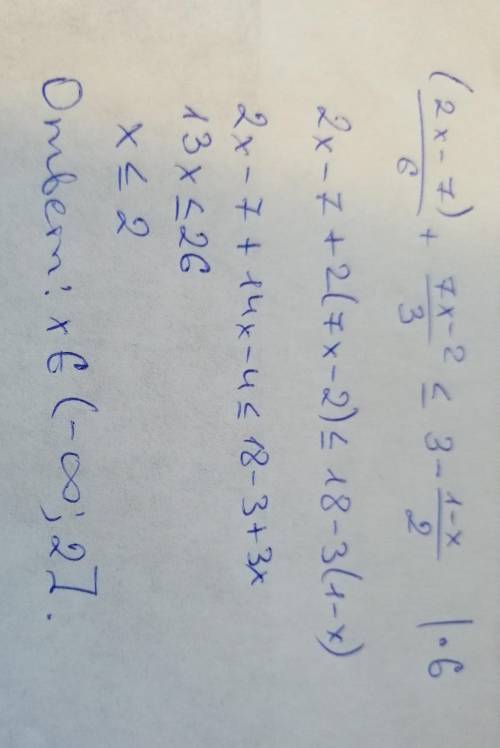 (2x-7)/6 + 7x-2/3 ≤ 3 - 1-x/2 | ·6
2x-7+2(7x-2)≤18-3(1-x)
2x-7+14x-4≤18-3+3x
13x≤26
x≤2
Ответ: x∈(-∞; 2].